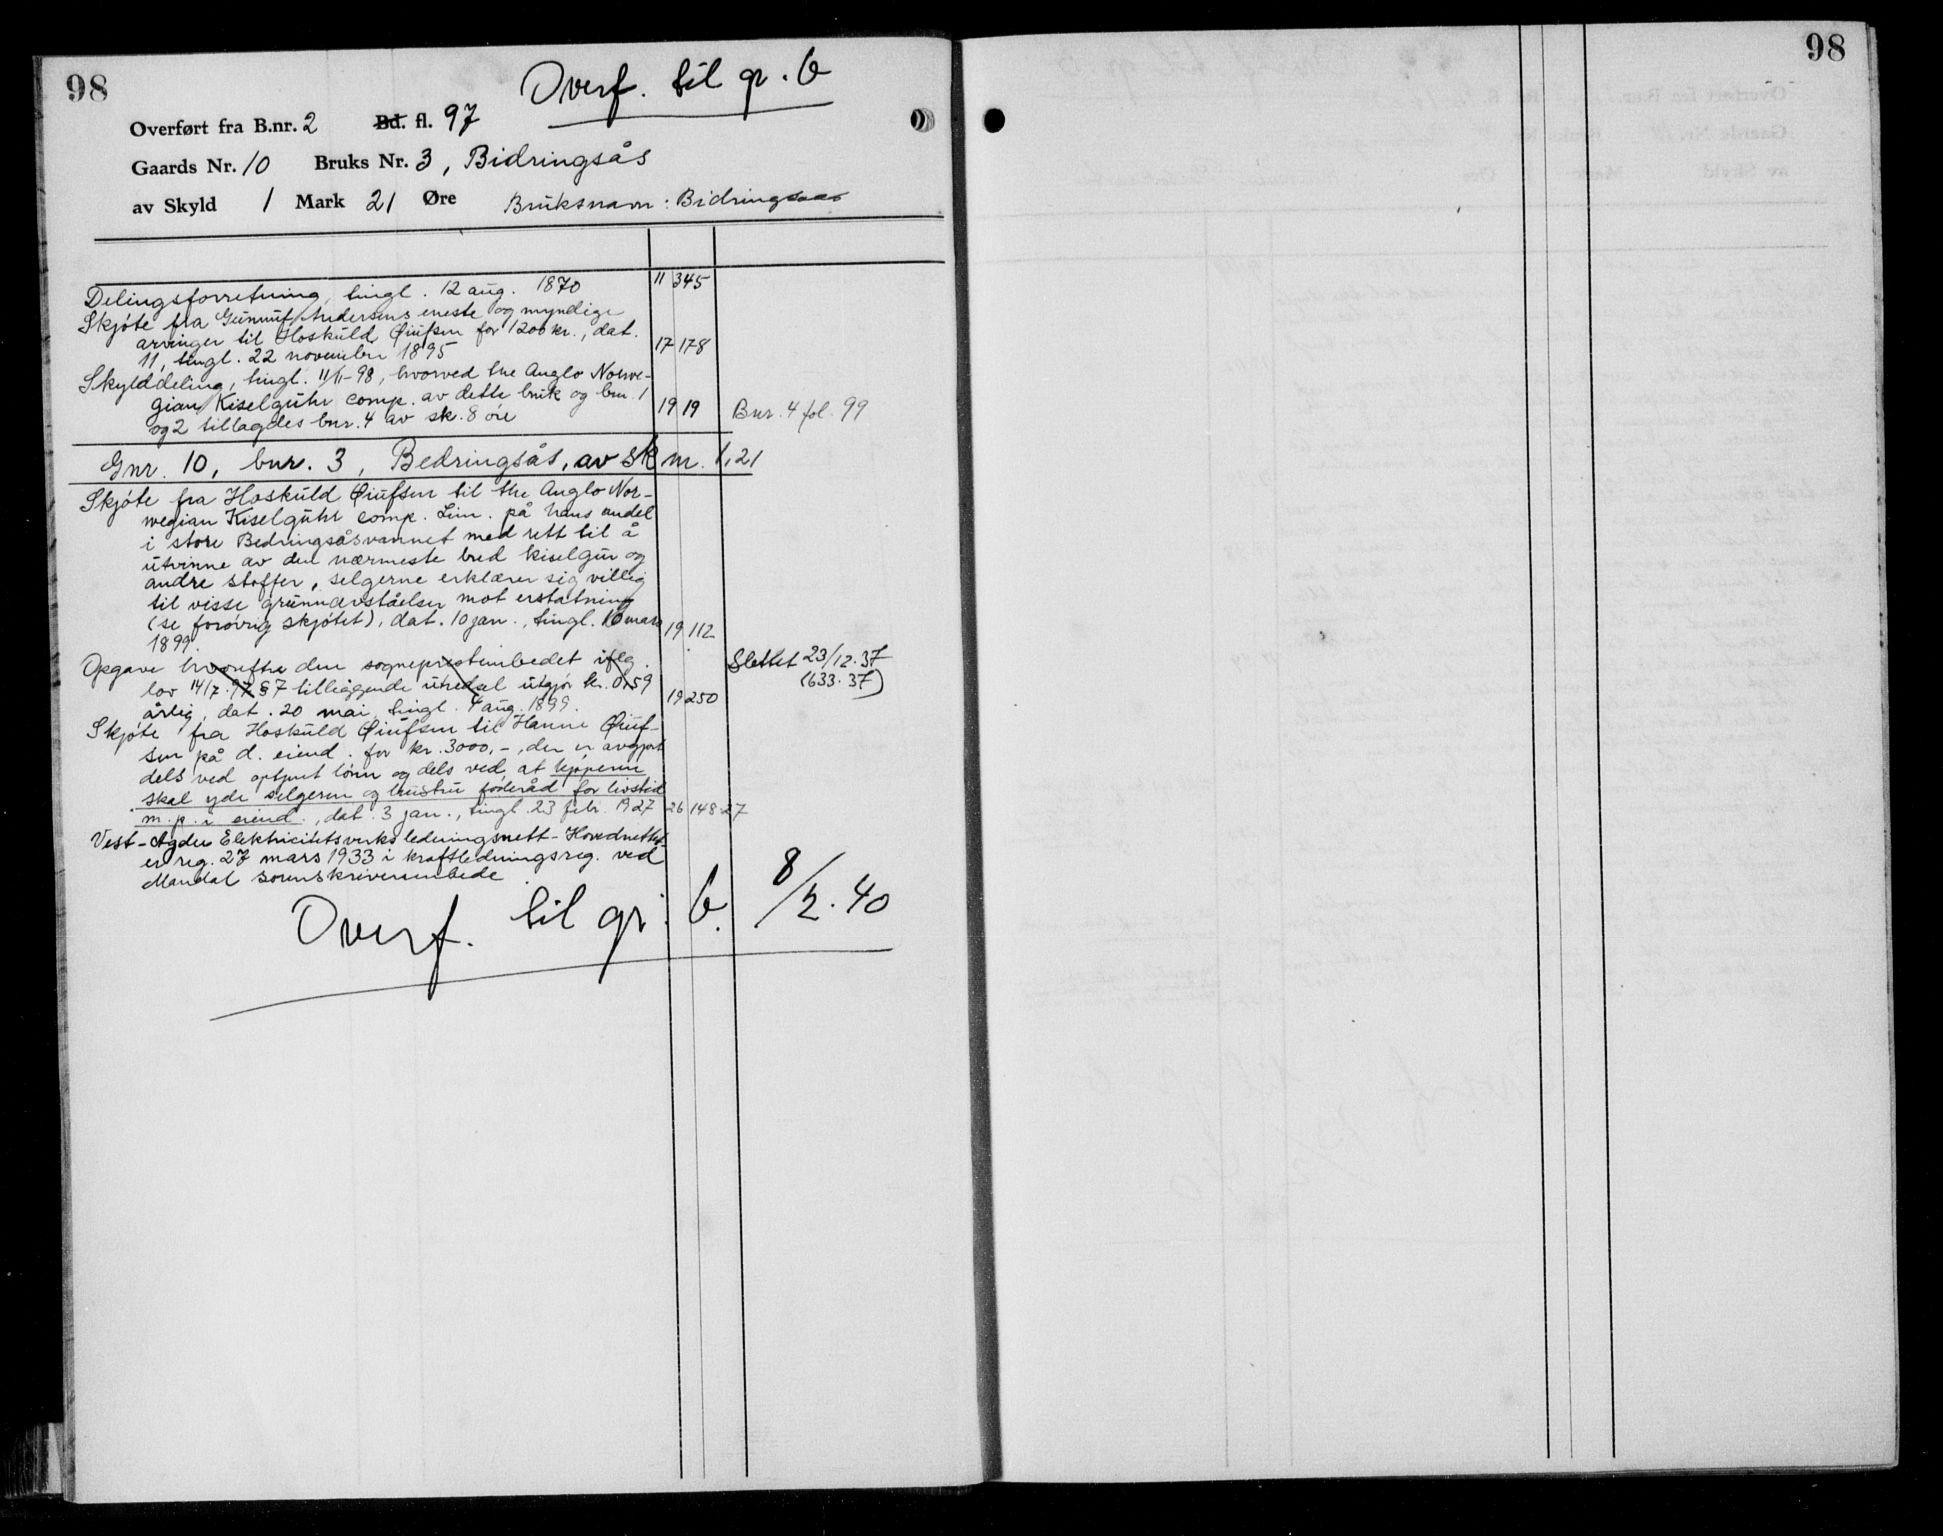 98
Overf. til gr. b
Overført fra B.nr. 2 Bd. fl. 97
Gaards Nr. 10 Bruks Nr. 3, Bidringsås
av Skyld 1 Mark 21 Øre Bruksnavn: Bidringsaas
Delingsforretning, tingl. 12 aug. 1870 11 345
Skjøte fra Gunnuf Andersens eneste og myndige
arvinger til Hoskuld Øiufsen for 1200 kr., dat.
11, tingl. 22 november 1895 17 178
Skylddeling, tingl. 11/11-98, hvorved the Anglo Norwe-
gian Kiselguhr comp. av dette bruk og bnr. 1
og 2 tillagdes bnr. 4 av sk. 8 øre 19 19 Bnr. 4 fol. 99
Gnr. 10, bnr. 3, Bedringsås, av sk m. 1,21
Skjøte fra Hoskuld Øiufsen til the Anglo Nor-
wegian Kiselguhr comp. Lim. på hans andel
i store Bedringsåsvannet med rett til å
utvinne av den nærmeste bred kiselgur og
andre stoffer, selgerne erklærer sig villig
til visse grunnavståelser mot erstatning
(se forøvrig skjøtet), dat. 10 jan., tingl. 16 mars
1899. 19 112
Opgave hvorefter den sogneprestembedet iflg.
lov 14/7.97 § 7 tilliggende utredsel utgjør kr. 0,59
årlig, dat. 20 mai, tingl. 4 aug. 1899. 19 250 Slettet 23/12.37
(633.37)
Skjøte fra Hoskuld Øiufsen til Hanne Øiuf-
sen på d. eiend. for kr. 3000,-, der er avgjort
dels ved optjent lønn og dels ved at kjøperen
skal yde selgeren og hustru føderåd for livstid
m. p. i eiend., dat. 3 jan., tingl. 23 febr. 1927 26 148 27
Vest-Agder Elektricitetsverks ledningsnett-Hovednettet
er reg. 27 mars 1933 i kraftledningsreg. ved
Mandal sorenskriverembede
Overf. til gr. b. 8/2.40
98